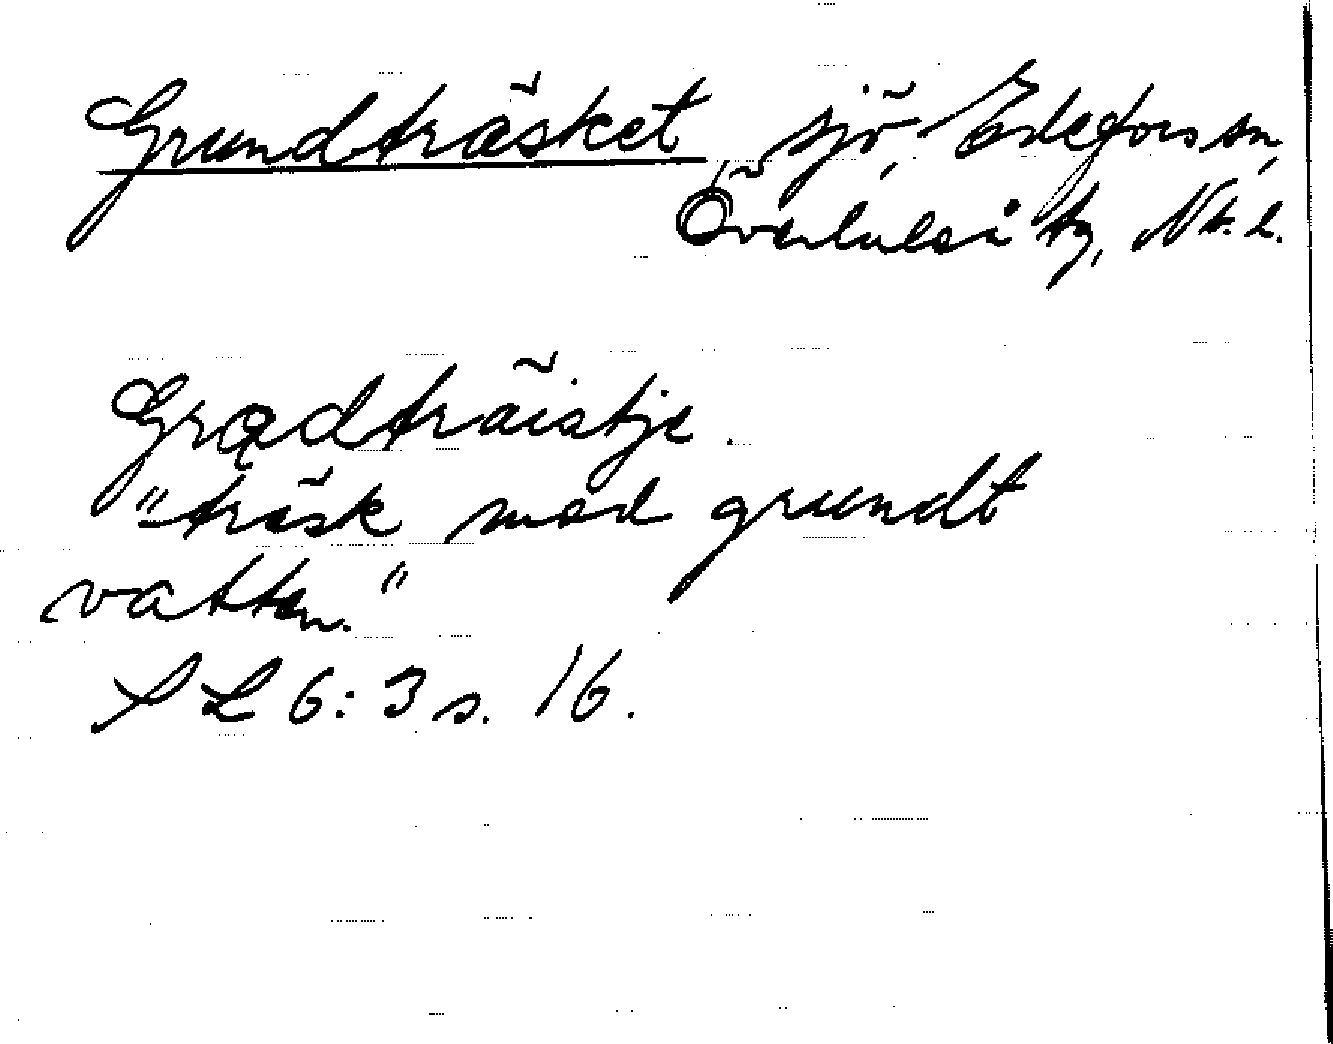 Grundträsket, sjö, Edefors sn,
Överluleå tg, Nb. l.
Grǫdträistje.
"träsk med grundt
vatten."
SL 6:3 s. 16.